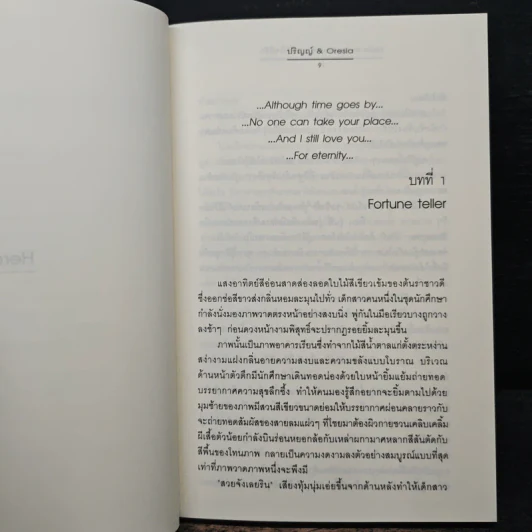 ปริญญ์ & Oresia
9
...Although time goes by...
...No one can take your place...
...And I still love you...
...For eternity...
บทที่ 1
Fortune teller
แสงอาทิตย์สีอ่อนสาดส่องลอดใบไม้สีเขียวเข้มของต้นราชาวดี
ซึ่งออกช่อสีขาวส่งกลิ่นหอมละมุนไปทั่ว เด็กสาวคนหนึ่งในชุดนักศึกษา
กำลังนั่งมองภาพวาดตรงหน้าอย่างสงบนิ่ง พู่กันในมือเรียวบางถูกวาง
ลงช้าๆ ก่อนดวงหน้างามพิสุทธิ์จะปรากฏรอยยิ้มละมุนขึ้น
ภาพนั้นเป็นภาพอาคารเรียนซึ่งทำจากไม้สีน้ำตาลแก่ตั้งตระหง่าน
สง่างามแฝงกลิ่นอายความสงบและความขลังแบบโบราณ บริเวณ
ด้านหน้าตัวตึกมีนักศึกษาเดินทอดน่องด้วยใบหน้ายิ้มแย้มถ่ายทอด
บรรยากาศความสุขลึกซึ้ง ทำให้คนมองรู้สึกอยากจะยิ้มตามไปด้วย
มุมซ้ายของภาพมีสวนสีเขียวขนาดย่อมให้บรรยากาศผ่อนคลายราวกับ
จะถ่ายทอดสัมผัสของสายลมแผ่วๆ ที่โชยมาต้องผิวกายชวนเคลิบเคลิ้ม
ผีเสื้อตัวน้อยกำลังบินร่อนหยอกล้อกับเหล่าผกามาศหลากสีสันตัดกับ
สีพื้นของโทนภาพ กลายเป็นความงดงามลงตัวอย่างสมบูรณ์แบบที่สุด
เท่าที่ภาพวาดภาพหนึ่งจะพึงมี
"สวยจังเลยริน" เสียงทุ้มนุ่มเอ่ยขึ้นจากด้านหลังทำให้เด็กสาว